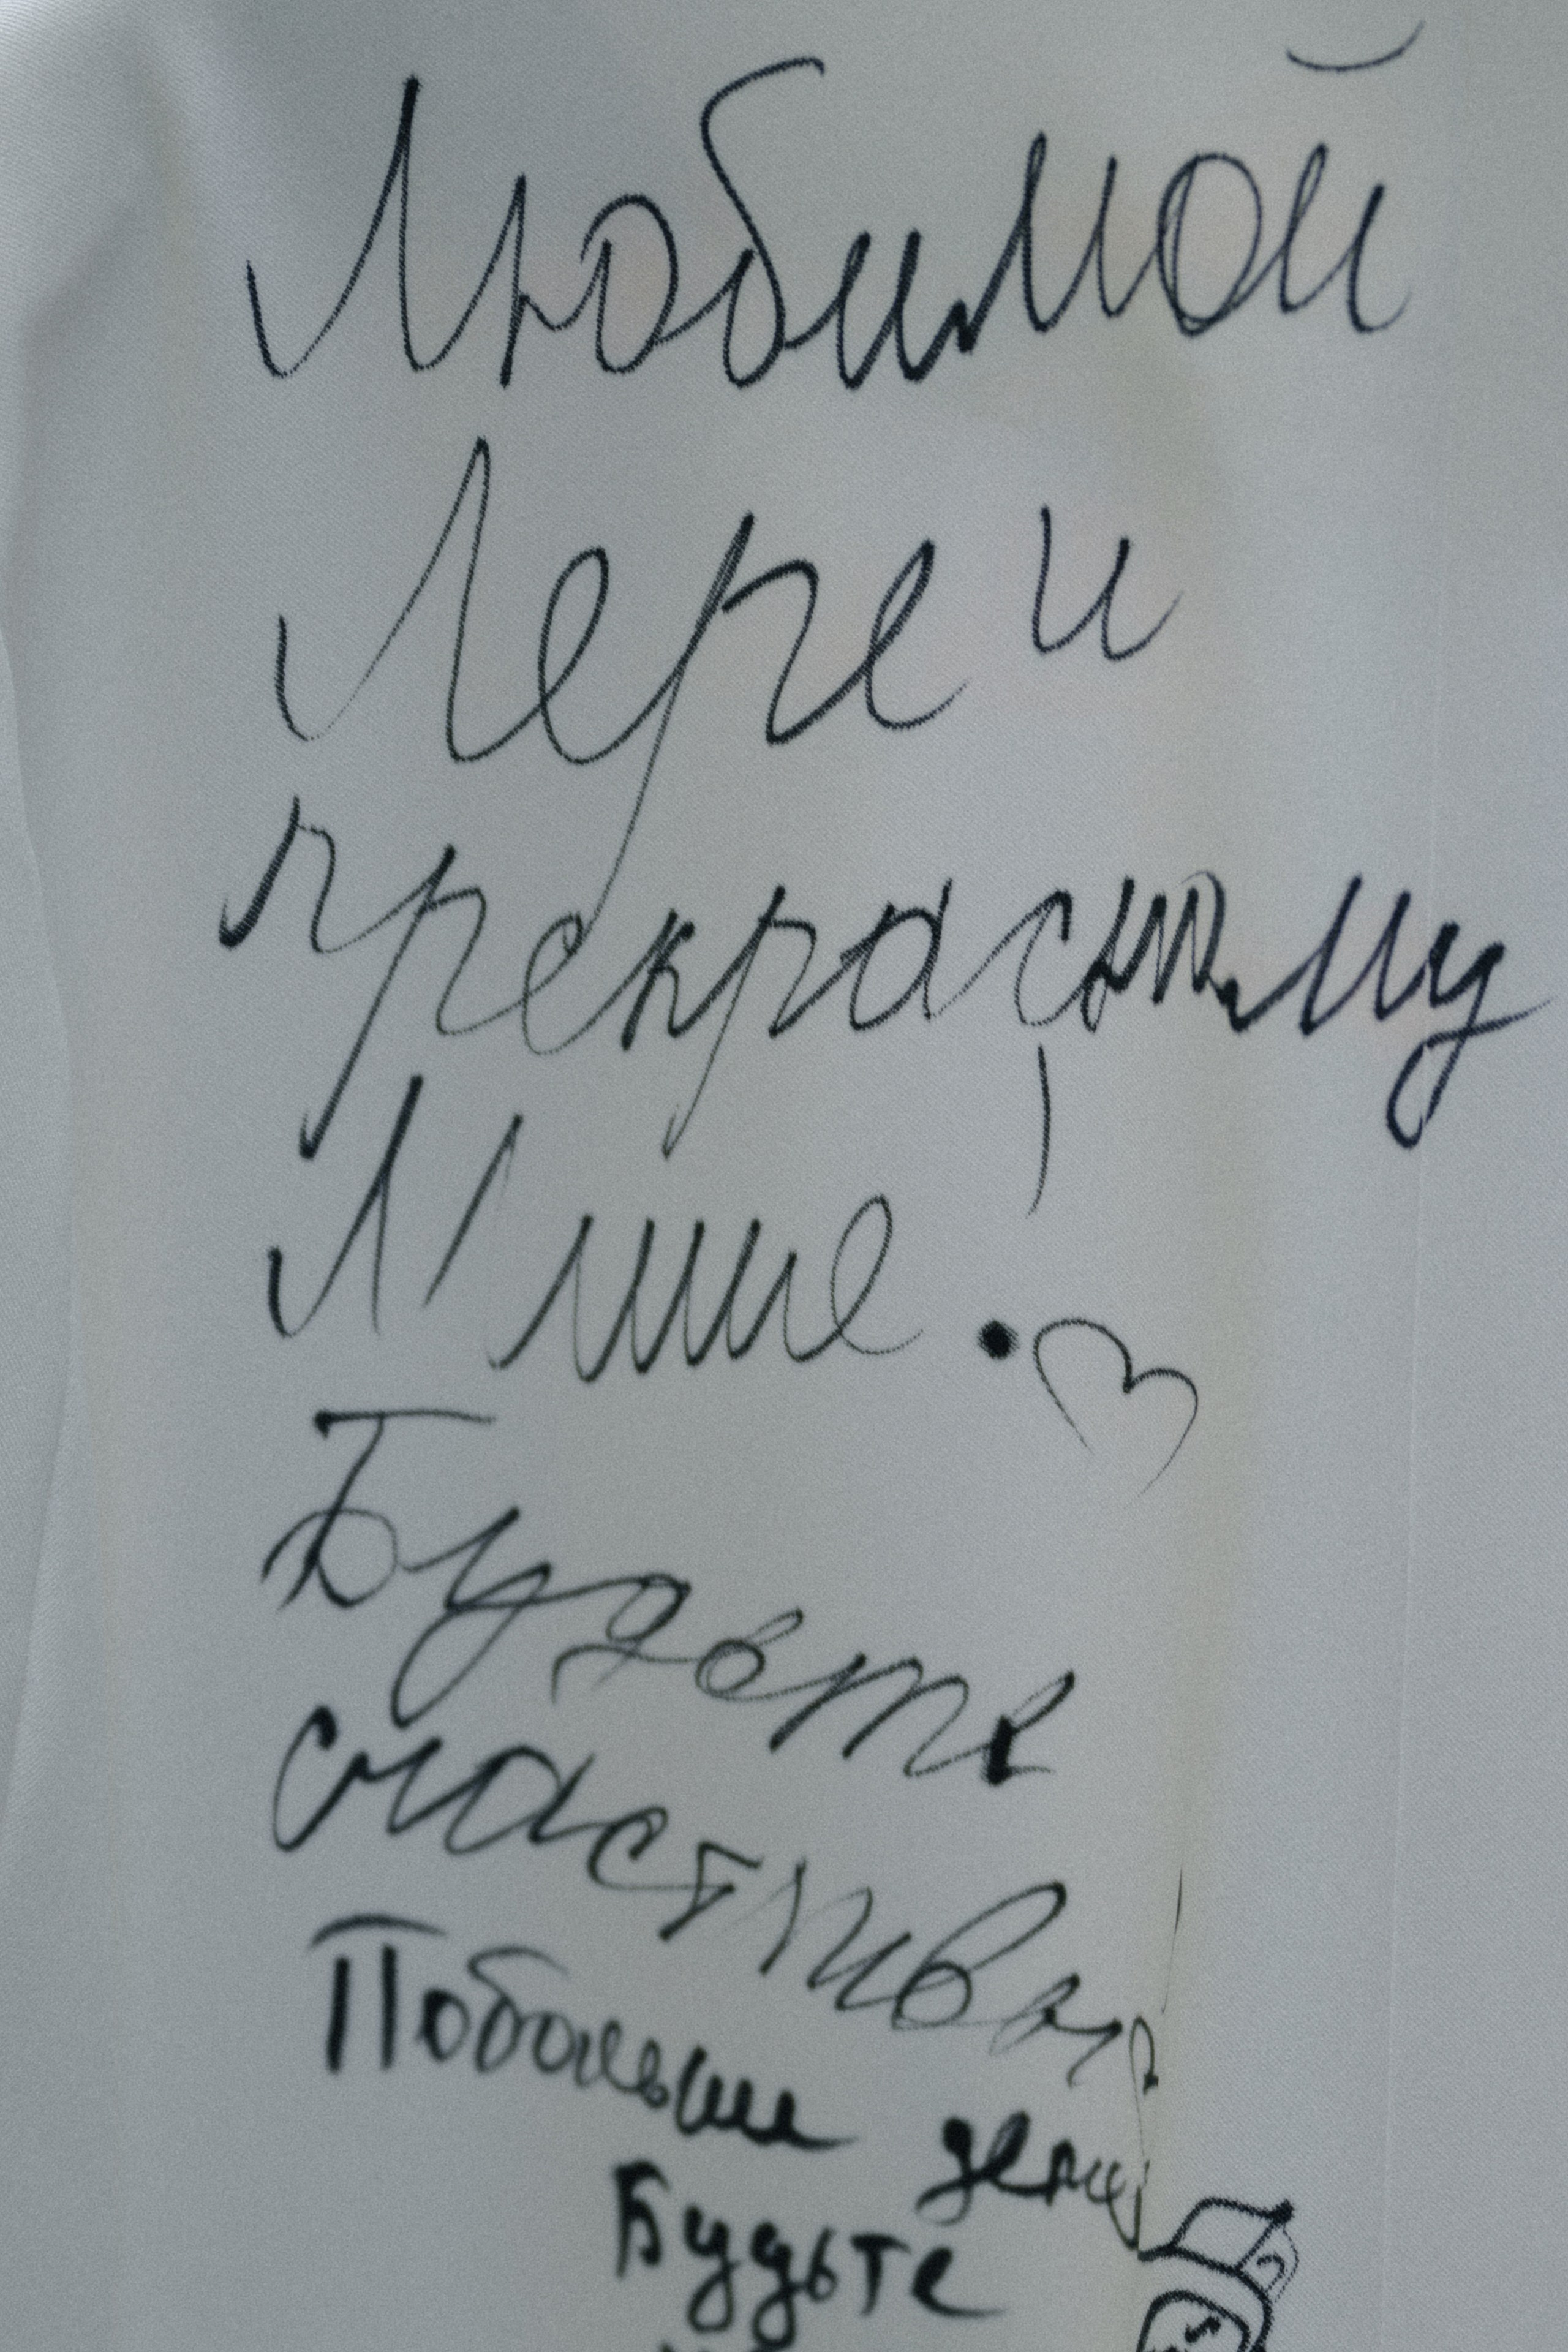 Любимой
Лере и
прекрасному
Мише.
Будьте
счастливы
Побольше денег
Будьте